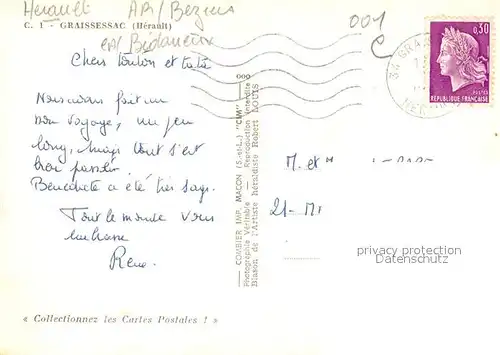 Herault AR/Beziers
C. 1 - GRAISSESSAC (Hérault)
CA/Bédarieux
001
C
0,30
POSTES
REPUBLIQUE FRANÇAISE
34 GRAI
HER
Chers tonton et tata
Nous avons fait un
bon voyage, un peu
long, mais tout s'est
bien passé.
Bénédicte a été très sage.
Tout le monde vous
embrasse
René.
— COMBIER IMP. MACON (S.-et-L.) "CIM" —
Photographie Véritable - Reproduction interdite
Blason de l'Artiste héraldiste Robert LOUIS
M. et M
21-
privacy protection
Datenschutz
« Collectionnez les Cartes Postales ! »